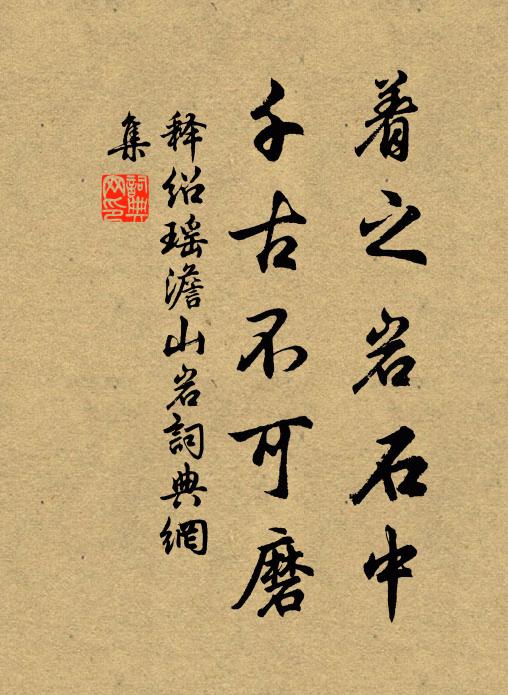 着之岩石中
千古不可磨
释绍瑶澹山岩詞典網
集
詞典
网印